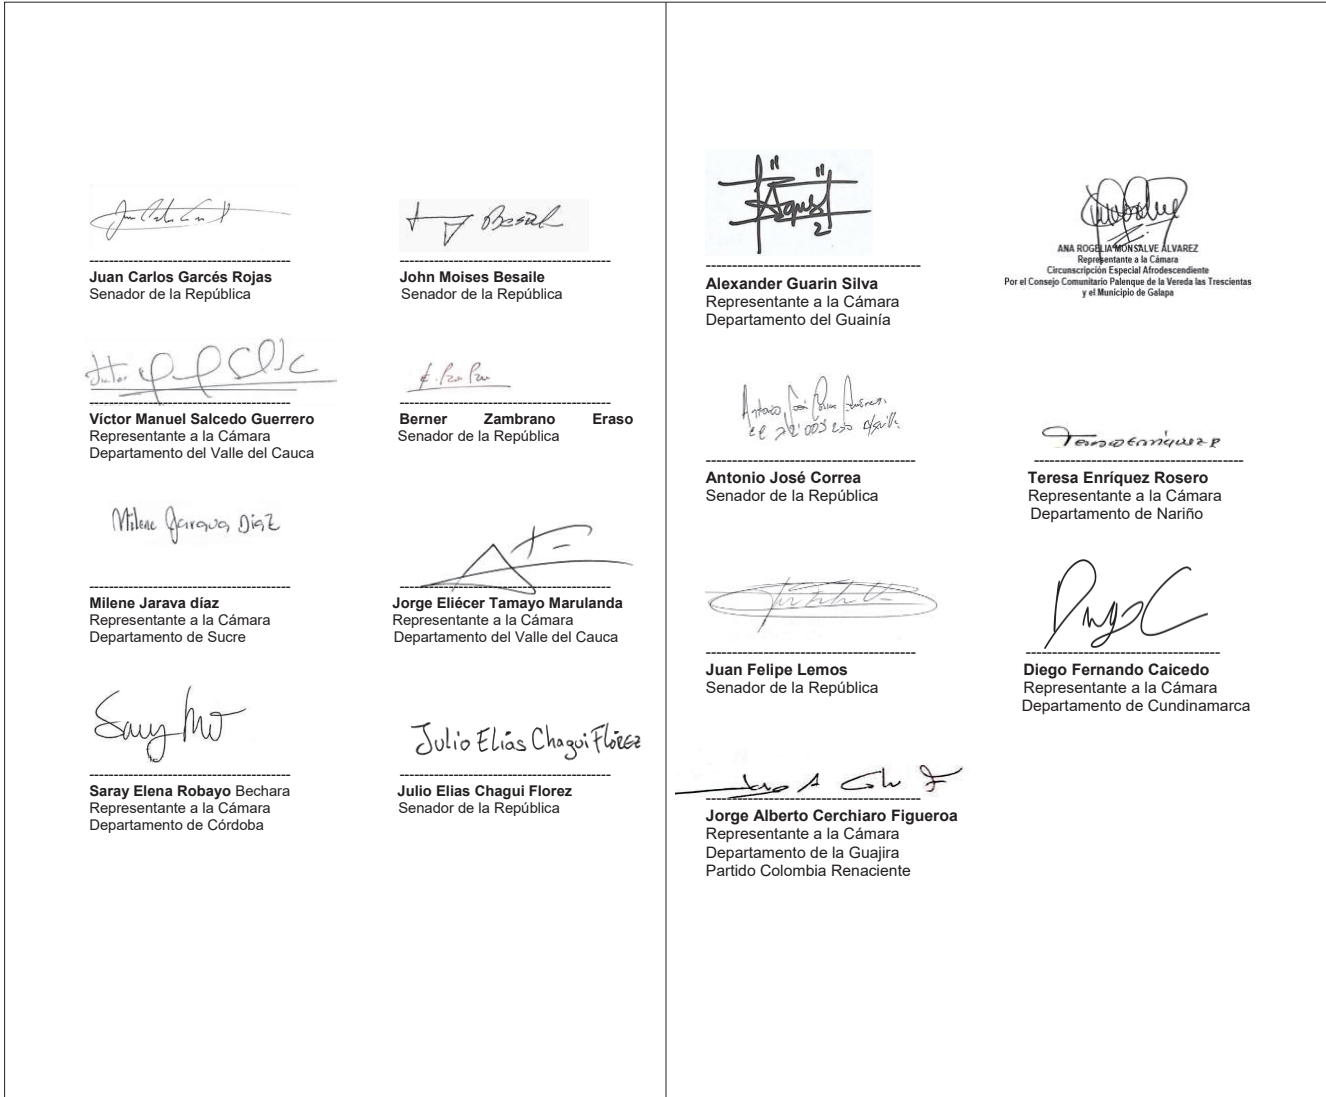 Juan Carlos Garcés Rojas
Senador de la República
John Moises Besaile
Senador de la República
Víctor Manuel Salcedo Guerrero
Representante a la Cámara
Departamento del Valle del Cauca
Berner Zambrano Eraso
Senador de la República
Milene Jarava Diaz
Milene Jarava díaz
Representante a la Cámara
Departamento de Sucre
Jorge Eliécer Tamayo Marulanda
Representante a la Cámara
Departamento del Valle del Cauca
Saray Elena Robayo Bechara
Representante a la Cámara
Departamento de Córdoba
Julio Elías Chagui Flórez
Julio Elias Chagui Florez
Senador de la República
Alexander Guarin Silva
Representante a la Cámara
Departamento del Guainía
ANA ROGELIA MONSALVE ALVAREZ
Representante a la Cámara
Circunscripción Especial Afrodescendiente
Por el Consejo Comunitario Palenque de la Vereda las Trescientas
y el Municipio de Galapa
Antonio José Correa
Senador de la República
Teresa Enríquez Rosero
Representante a la Cámara
Departamento de Nariño
Juan Felipe Lemos
Senador de la República
Diego Fernando Caicedo
Representante a la Cámara
Departamento de Cundinamarca
Jorge Alberto Cerchiaro Figueroa
Representante a la Cámara
Departamento de la Guajira
Partido Colombia Renaciente